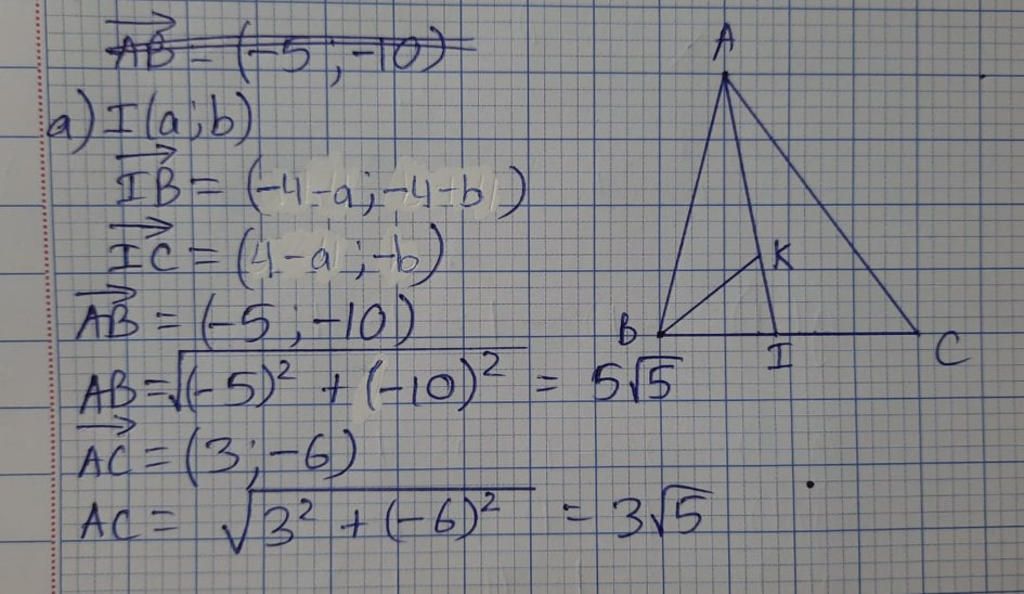 AB = (-5 ; -10)
a) I(a;b)
IB = (-4-a; -4-b)
IC = (4-a; -b)
AB = (-5 ; -10)
AB = √(-5)² + (-10)² = 5√5
AC = (3; -6)
AC = √3² + (-6)² = 3√5
A
K
B
I
C